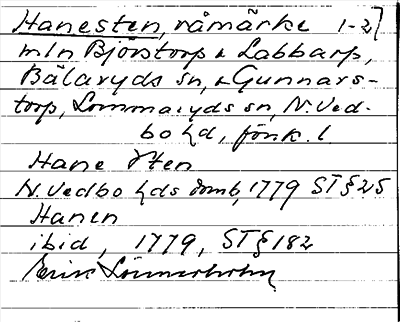 Hanesten, råmärke 1-2]
mln Björstorp & Labbarp,
Bälaryds sn, & Gunnars-
torp, Lommaryds sn, N. Ved-
bo hd, Jönk. l.
Hane Sten
N. Vedbo hds domb, 1779 ST § 25
Hanen
ibid, 1779, ST § 182